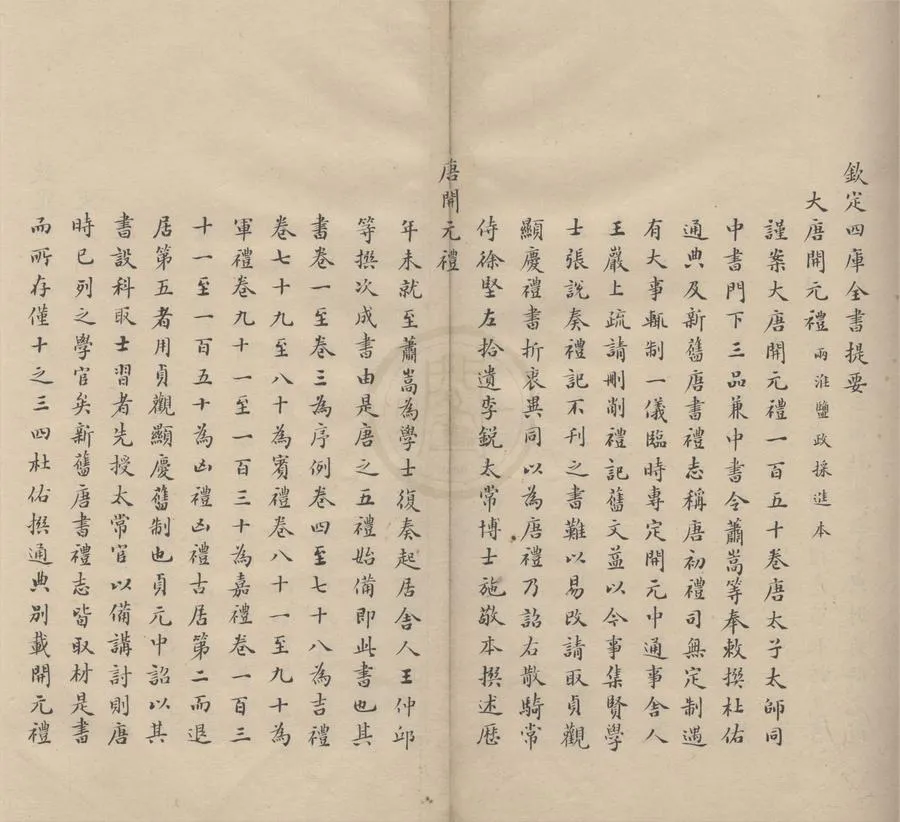 欽定四庫全書提要
大唐開元禮 兩淮鹽政採進本
謹案大唐開元禮一百五十卷唐太子太師同
中書門下三品兼中書令蕭嵩等奉敕撰杜佑
通典及新舊唐書禮志稱唐初禮司無定制遇
有大事輒制一儀臨時專定開元中通事舍人
王嵒上疏請刪削禮記舊文益以今事集賢學
士張說奏禮記不刊之書難以易改請取貞觀
顯慶禮書折衷異同以為唐禮乃詔右散騎常
侍徐堅左拾遺李鋭太常博士施敬本撰述歷
唐開元禮
年未就至蕭嵩為學士復奏起居舍人王仲邱
等撰次成書由是唐之五禮始備即此書也其
書卷一至卷三為序例卷四至七十八為吉禮
卷七十九至八十為賓禮卷八十一至九十為
軍禮卷九十一至一百三十為嘉禮卷一百三
十一至一百五十為凶禮凶禮古居第二而退
居第五者用貞觀顯慶舊制也貞元中詔以其
書設科取士習者先授太常官以備講討則唐
時已列之學官矣新舊唐書禮志皆取材是書
而所存僅十之三四杜佑撰通典別載開元禮